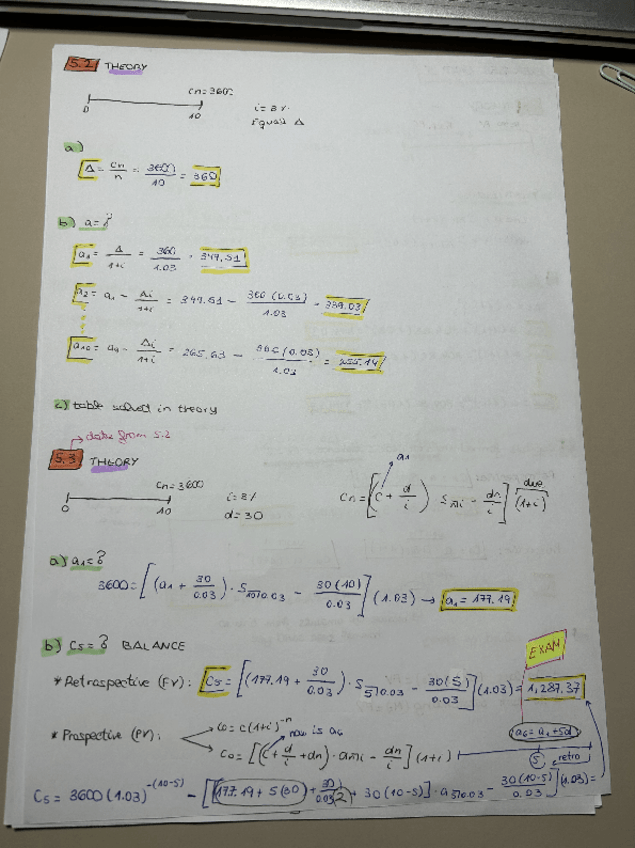 5.2 THEORY
Cn=3600
0 10
i=3%
Equal Δ
a)
Δ = Cn/n = 3600/10 = 360
b) a=?
a1 = Δ/1+i = 360/1.03 = 349.51
a2 = a1 - Δi/1+i = 349.51 - 360(0.03)/1.03 = 339.03
a10 = a9 - Δi/1+i = 265.63 - 360(0.03)/1.03 = 255.14
c) table solved in theory
→ data from 5.2
5.3 THEORY
Cn=3600
0 10
i=3%
d=30
a1
Cn = [(C + d/i) S n̅|i - dn/i] (1+i) due
a) a1=?
3600 = [(a1 + 30/0.03) · S 10̅|0.03 - 30(10)/0.03] (1.03) → a1 = 177.19
b) C5=? BALANCE
EXAM
* Retrospective (FV): C5 = [(177.19 + 30/0.03) · S 5̅|0.03 - 30(5)/0.03] (1.03) = 1,287.37
a6 = a1 + 5d
* Prospective (PV): C0 = C(1+i)^-n
now is a6
C0 = [(C + d/i + dn) · a n̅|i - dn/i] (1+i)
5 retro
C5 = 3600(1.03)^-(10-5) - [(177.19 + 5(30) + 30/0.03 + 30(10-5)] · a 5̅|0.03 - 30(10-5)/0.03] (1.03) =